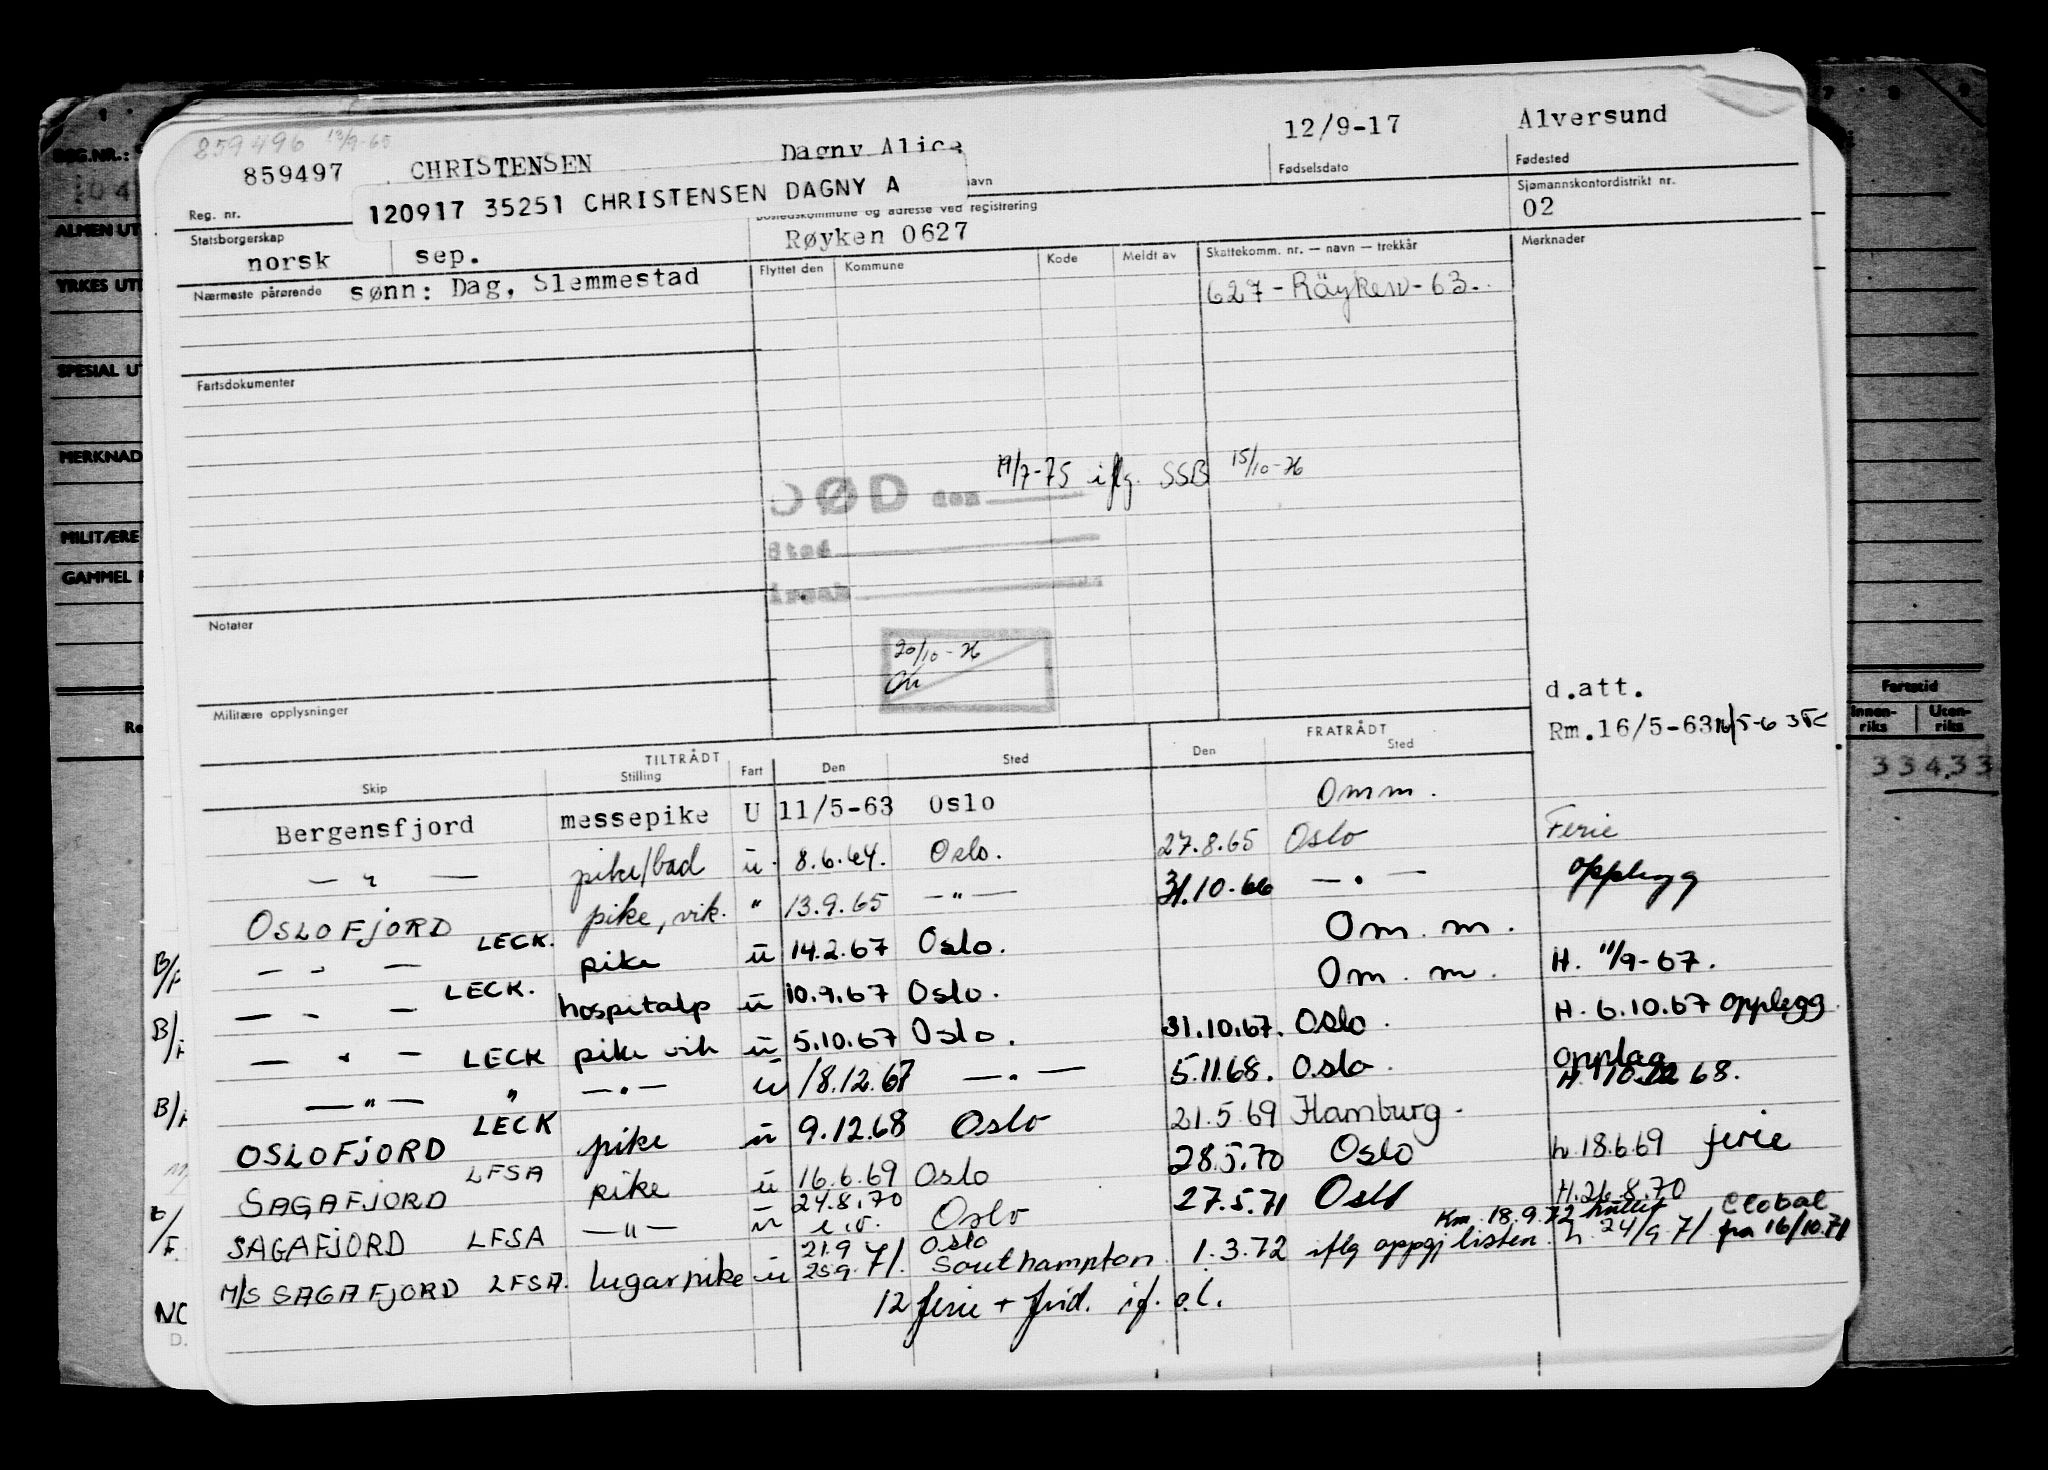 859496 13/9-65
859497 CHRISTENSEN Dagny Alice 12/9-17 Alversund
120917 35251 CHRISTENSEN DAGNY A
Reg. nr. navn Fødselsdato Fødested
Statsborgerskap Bostedskommune og adresse ved registrering Sjømannskontordistrikt nr.
norsk sep. Røyken 0627 02
Nærmeste pårørende sønn: Dag, Slemmestad
Flyttet den Kommune Kode Meldt av Skattekomm. nr. — navn — trekkår Merknader
627-Röyken-63.
Fartsdokumenter
DØD den 19/7-75 iflg. SSB 15/10-76
Sted
årsak
Notater
20/10-76
Militære opplysninger
d.att.
Rm.16/5-63 16/5-63
TILTRÅDT FRATRÅDT
Skip Stilling Fart Den Sted Den Sted
Bergensfjord messepike U 11/5-63 Oslo Omm.
— " — pike/bad u. 8.6.64. Oslo. 27.8.65 Oslo Ferie
OSLOFJORD pike, vik. " 13.9.65 — " — 31.10.66 — " — opplegg
B/F — " — LECK. pike u 14.2.67 Oslo. Om. m.
— " — LECK. hospitalp u 10.9.67 Oslo. Om. m. H. 11/9-67.
B/F — " — LECK pike vik u 5.10.67 Oslo. 31.10.67. Oslo. H. 6.10.67 opplegg
— " — " — " — u 18.12.67 — " — 5.11.68. Oslo. opplag
B/F OSLOFJORD LECK pike u 9.12.68 Oslo 21.5.69 Hamburg - H. 10.12 68.
SAGAFJORD LFSA pike u 16.6.69 Oslo 28.5.70 Oslo h. 18.6.69 ferie
B/F. SAGAFJORD LFSA — " — u 24.8.70 e.o. Oslo 27.5.71 Oslo H. 26.8.70
M/S SAGAFJORD LFSA. lugarpike u 21.9 25.9.71. Oslo Southampton. 1.3.72 iflg oppgj listen. Km. 18.9.72 h. 24/9 71. Global fra 16/10.71
12 ferie + frid. if. o.l.
REG.NR.:
ALMEN UT
YRKES UT
SPESIAL UT
MERKNAD
MILITÆRE
GAMMEL
Fartstid
Innen-riks Uten-riks
33433